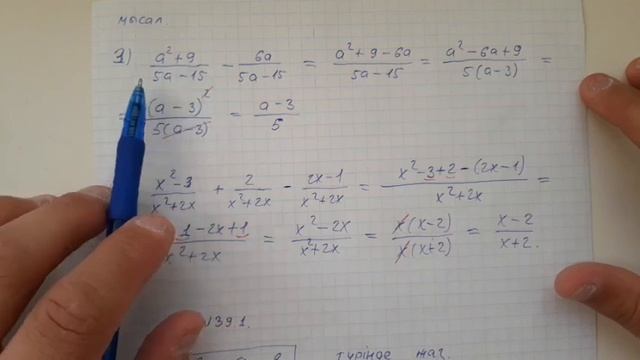 мысал
1) (a² + 9)/(5a - 15) - 6a/(5a - 15) = (a² + 9 - 6a)/(5a - 15) = (a² - 6a + 9)/(5(a - 3)) =
= (a - 3)²/(5(a - 3)) = (a - 3)/5
(x² - 3)/(x² + 2x) + 2/(x² + 2x) - (2x - 1)/(x² + 2x) = (x² - 3 + 2 - (2x - 1))/(x² + 2x) =
1 - 2x + 1/(x² + 2x) = (x² - 2x)/(x² + 2x) = x(x - 2)/(x(x + 2)) = (x - 2)/(x + 2).
139 1.
түрінде